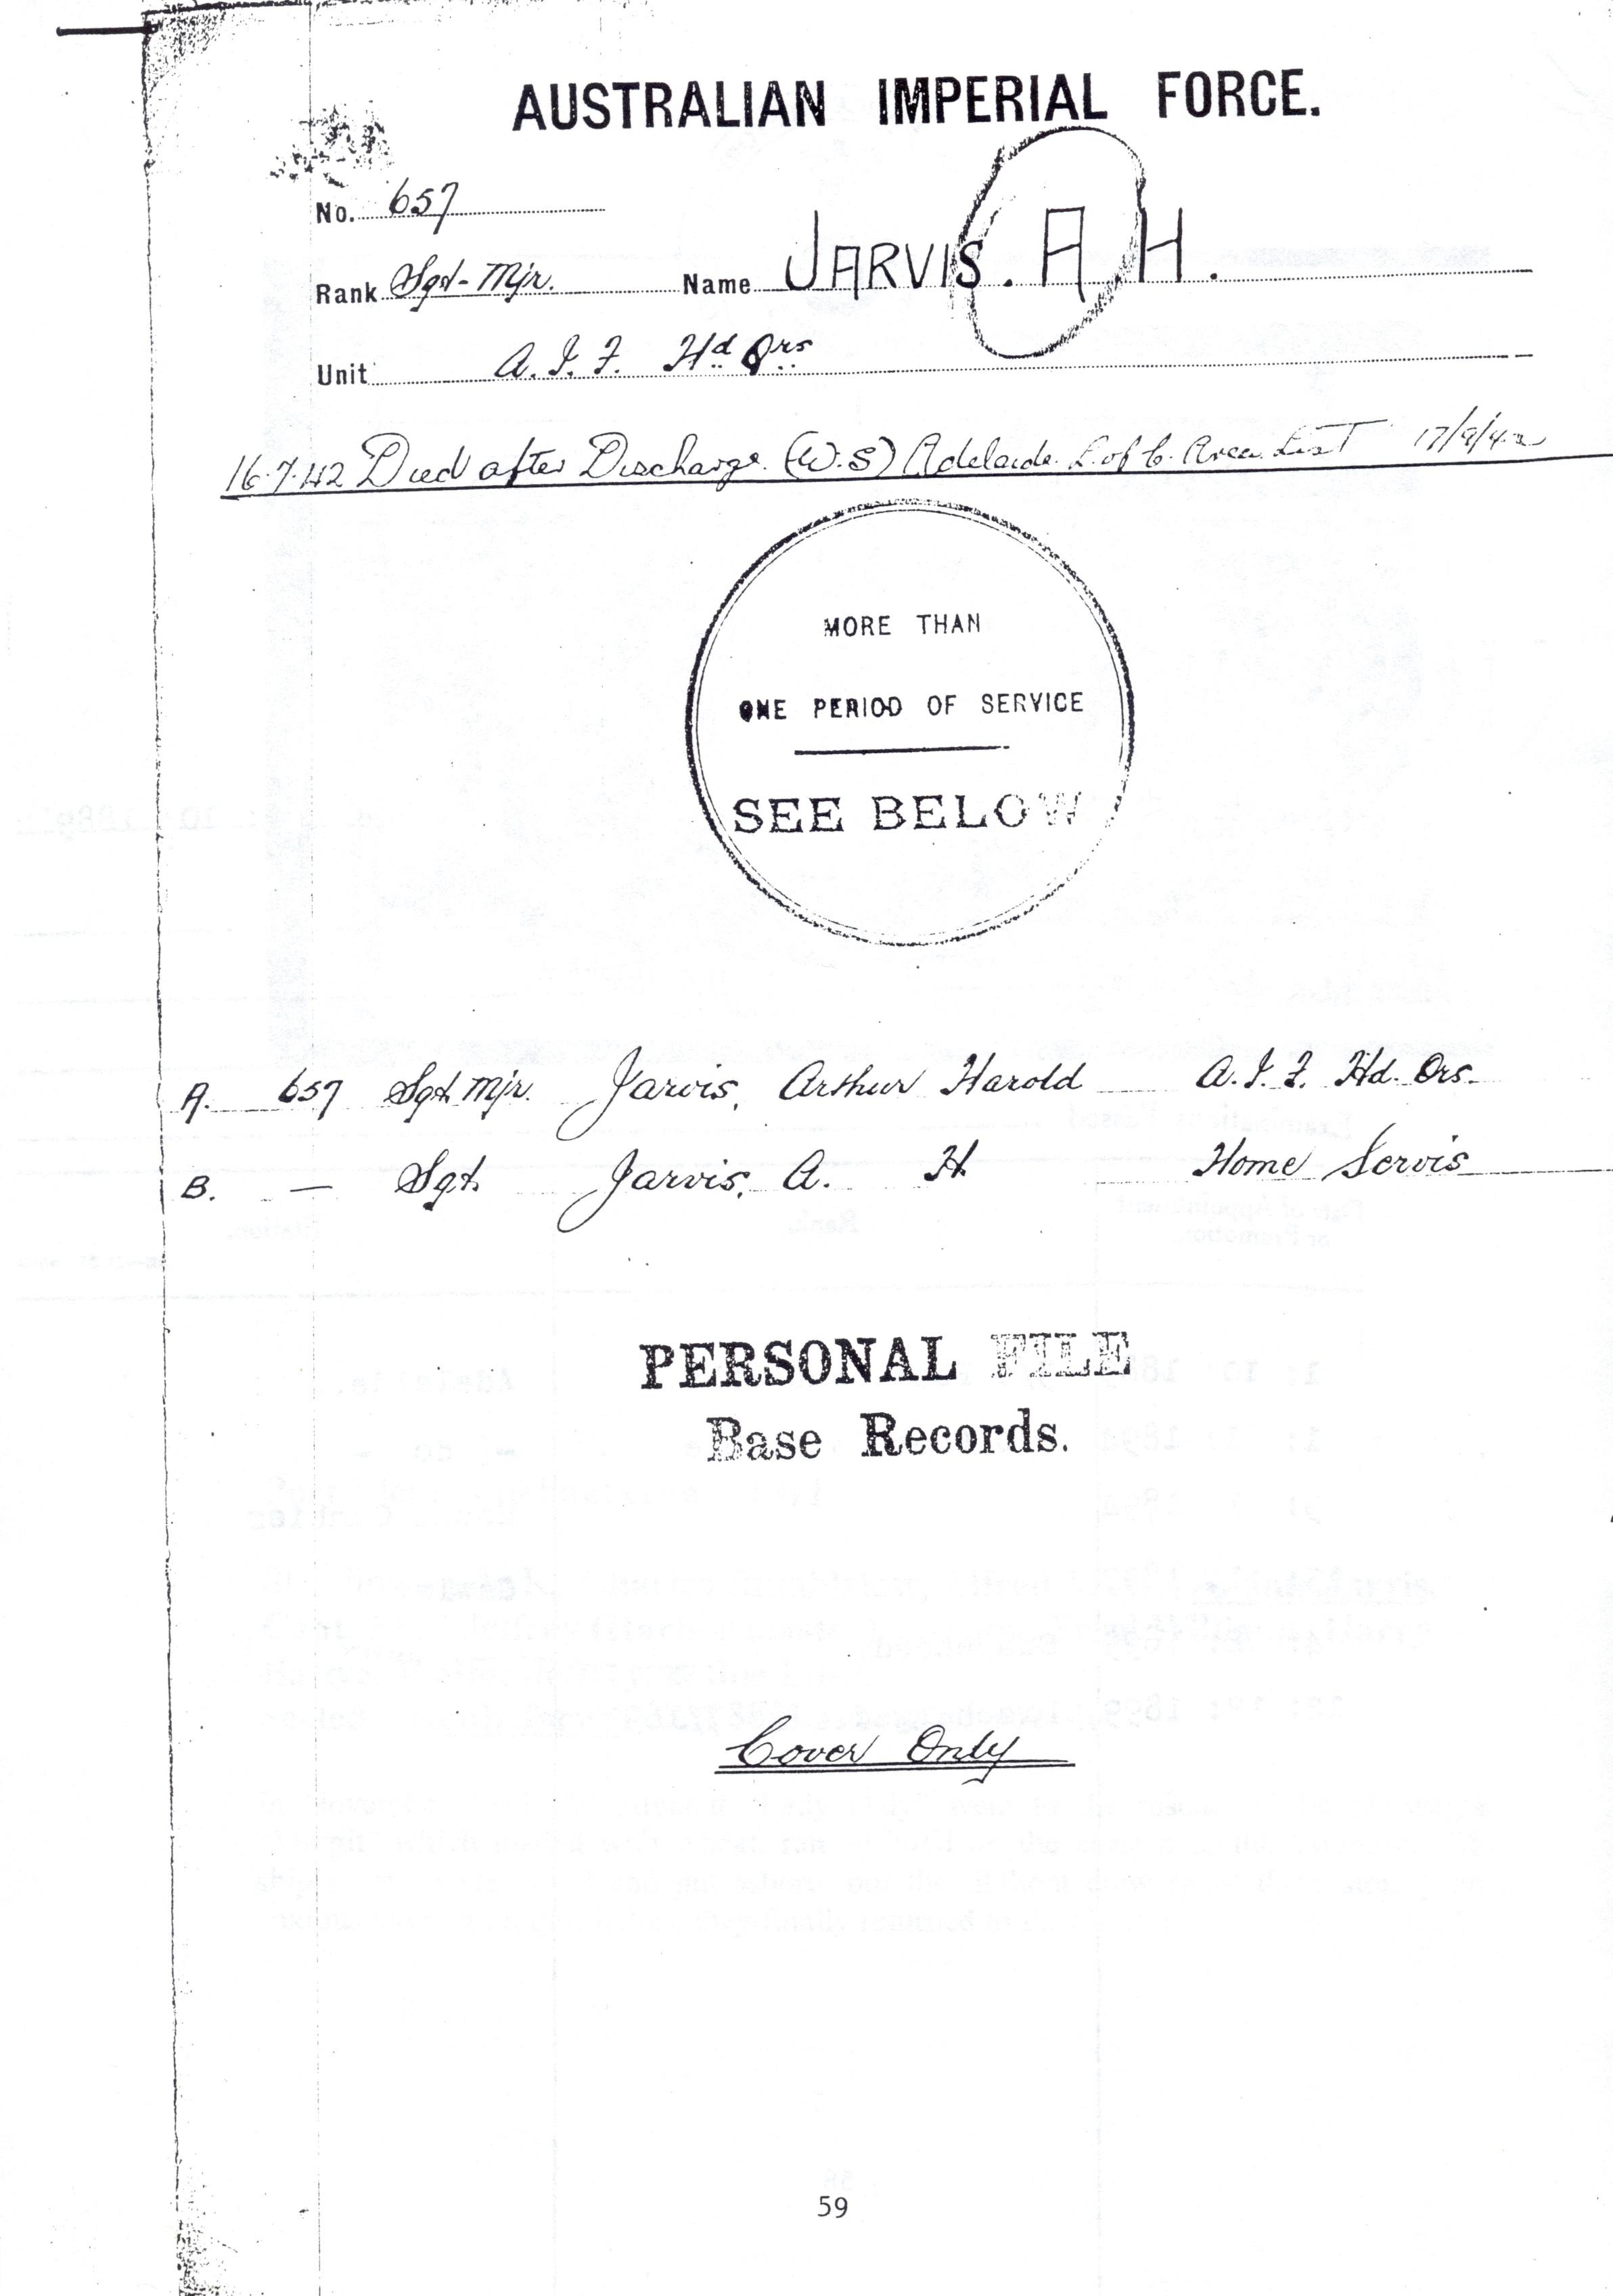 AUSTRALIAN IMPERIAL FORCE.
No. 657
Rank Sgt-Mjr. Name JARVIS. A H.
Unit A.I.F. Hd Qrs
16.7.42 Died after Discharge (W.S) Adelaide L. of C. Area List 17/9/42
MORE THAN
ONE PERIOD OF SERVICE
SEE BELOW
A. 657 Sgt Mjr. Jarvis, Arthur Harold A.I.F. Hd. Qrs.
B. — Sgt. Jarvis, A. H. Home Servis
PERSONAL FILE
Base Records.
Cover Only
59